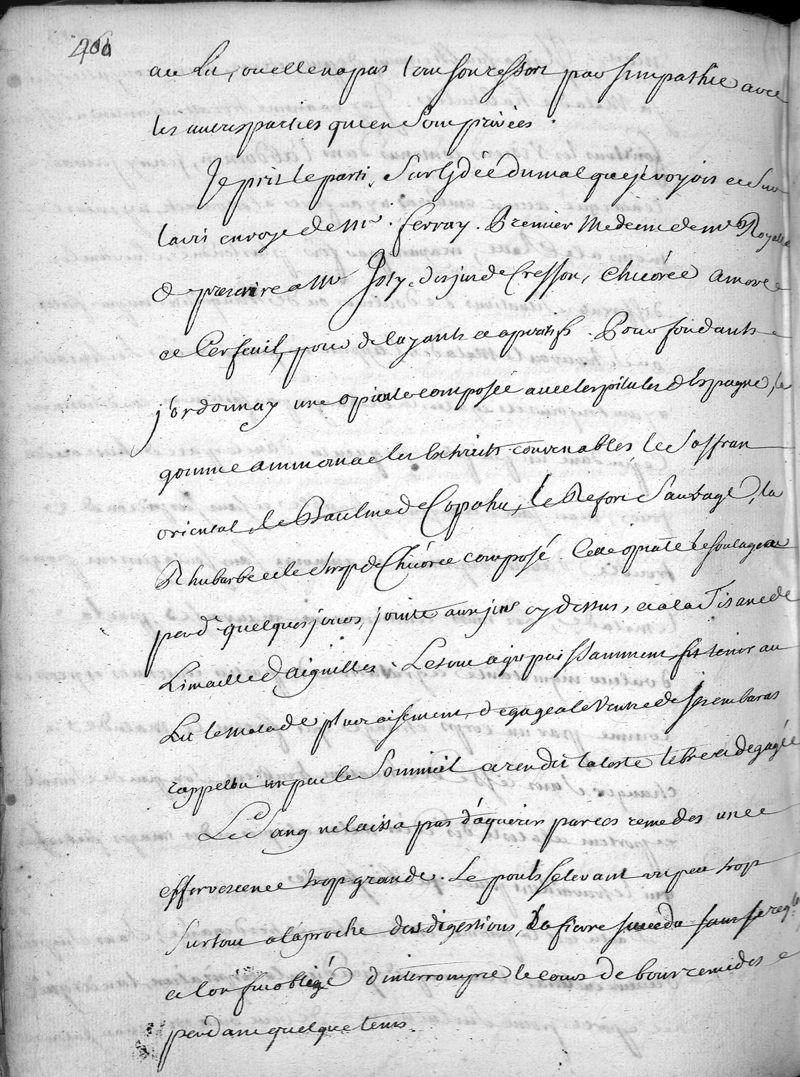 460
au Lit, ou elle n'a pas tout son ressort par simpathie avec
les autres parties qui en sont privées.
Je pris le parti, sur l'idée du mal que je voyois et sur
l'avis envoyé de Mr. Ferray. Premier Medecin de Mr Royalle
de prescrire a Mr Joly, des jus de Cresson, Chicorée amere
et Cerfeuil, pour delayants et aperitifs. Pour fondants
j'ordonnay une opiate composée avec les pilules d'Espagne, la
gomme ammoniac les Extraits convenables le Saffran
oriental, le Baulme de Copahu, le Refort Sauvage, la
Rhubarbe et le sirop de Chicorée composé. Cette opiate le soulagea
pend.t quelques jours, jointe aux jus cy dessus, et a la Tisane de
Limaille d'aiguilles. Le tout agit puissamment, fit tenir au
Lit le malade plus aisement, degagea le Ventre de ses embaras
rappella un peu le Sommeil et rendit la teste libre et degagée
Le Sang ne laissa pas d'aquerir par ces remedes une
effervescence trop grande. Le pouls s'elevant un peu trop
surtout a l'aproche des digestions, la fievre succeda sans se regler
et l'on fut obligé d'interrompre le cours de bons remedes
pendant quelque tems.